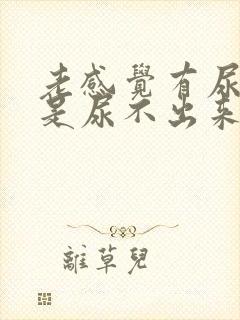 老感覺有尿
是尿不出來
離草兒